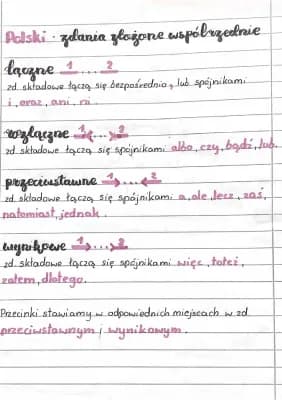 Polski - zdania złożone współrzędnie
łączne 1 ... 2
zd. składowe łączą się bezpośrednio, lub spójnikami
i, oraz, ani, ni.
rozłączne 1 ... 2
zd. składowe łączą się spójnikami albo, czy, bądź, lub.
przeciwstawne 1 ... 2
zd. składowe łączą się spójnikami a, ale, lecz, zaś,
natomiast, jednak.
wynikowe 1 ... 2
zd. składowe łączą się spójnikami więc, toteż,
zatem, dlatego.
Przecinki stawiamy w odpowiednich miejscach w zd.
przeciwstawnym i wynikowym.